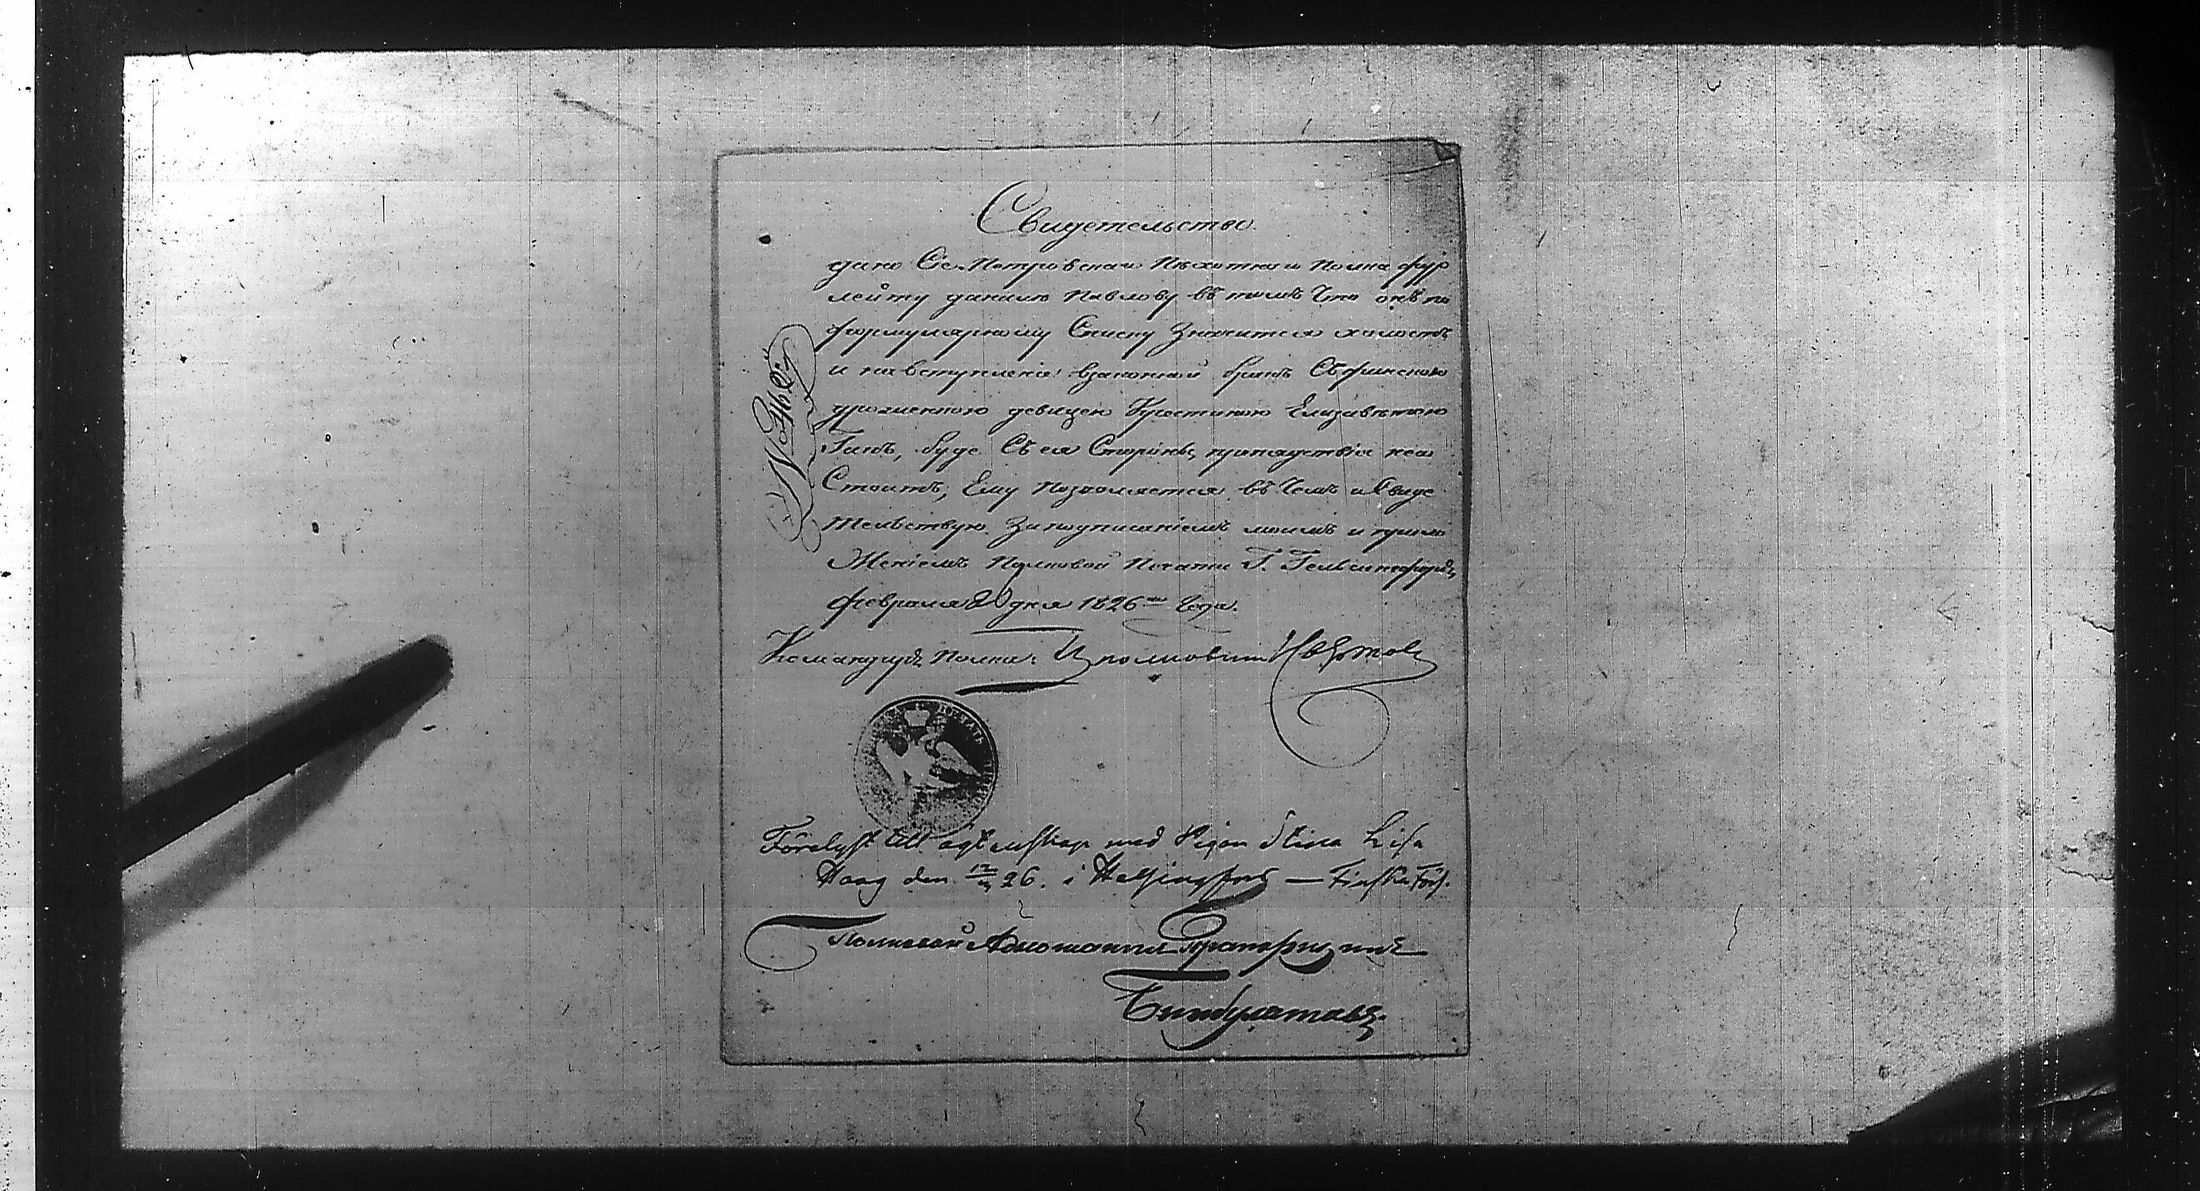 Свидетельство
дано Сіе Петровскаго Пѣхотнаго Полка фур
лейту данилѣ Павлову въ томъ Что онъ по
формулярному Списку Значится холостъ
и на вступленіе взаконной бракъ Съ финскою
уроженкою девицею Кристиною Елизаветою
Гакъ, буде Съ ея Стороны, препядствія не со
Стоитъ, Ему Позволяется въ Чемъ и Свиде
тельствую. Заподписаніемъ моимъ и прило
Женіемъ Полковой Печати Г. Гельсингфорсъ,
февраля 20 дня 1826 года.
Командиръ Полка: Полковникъ
Förelyst till ägtenskap med Pigan Stina Lisa
Haag den 26. i Helsingfors — Finska Förs.
Полковой